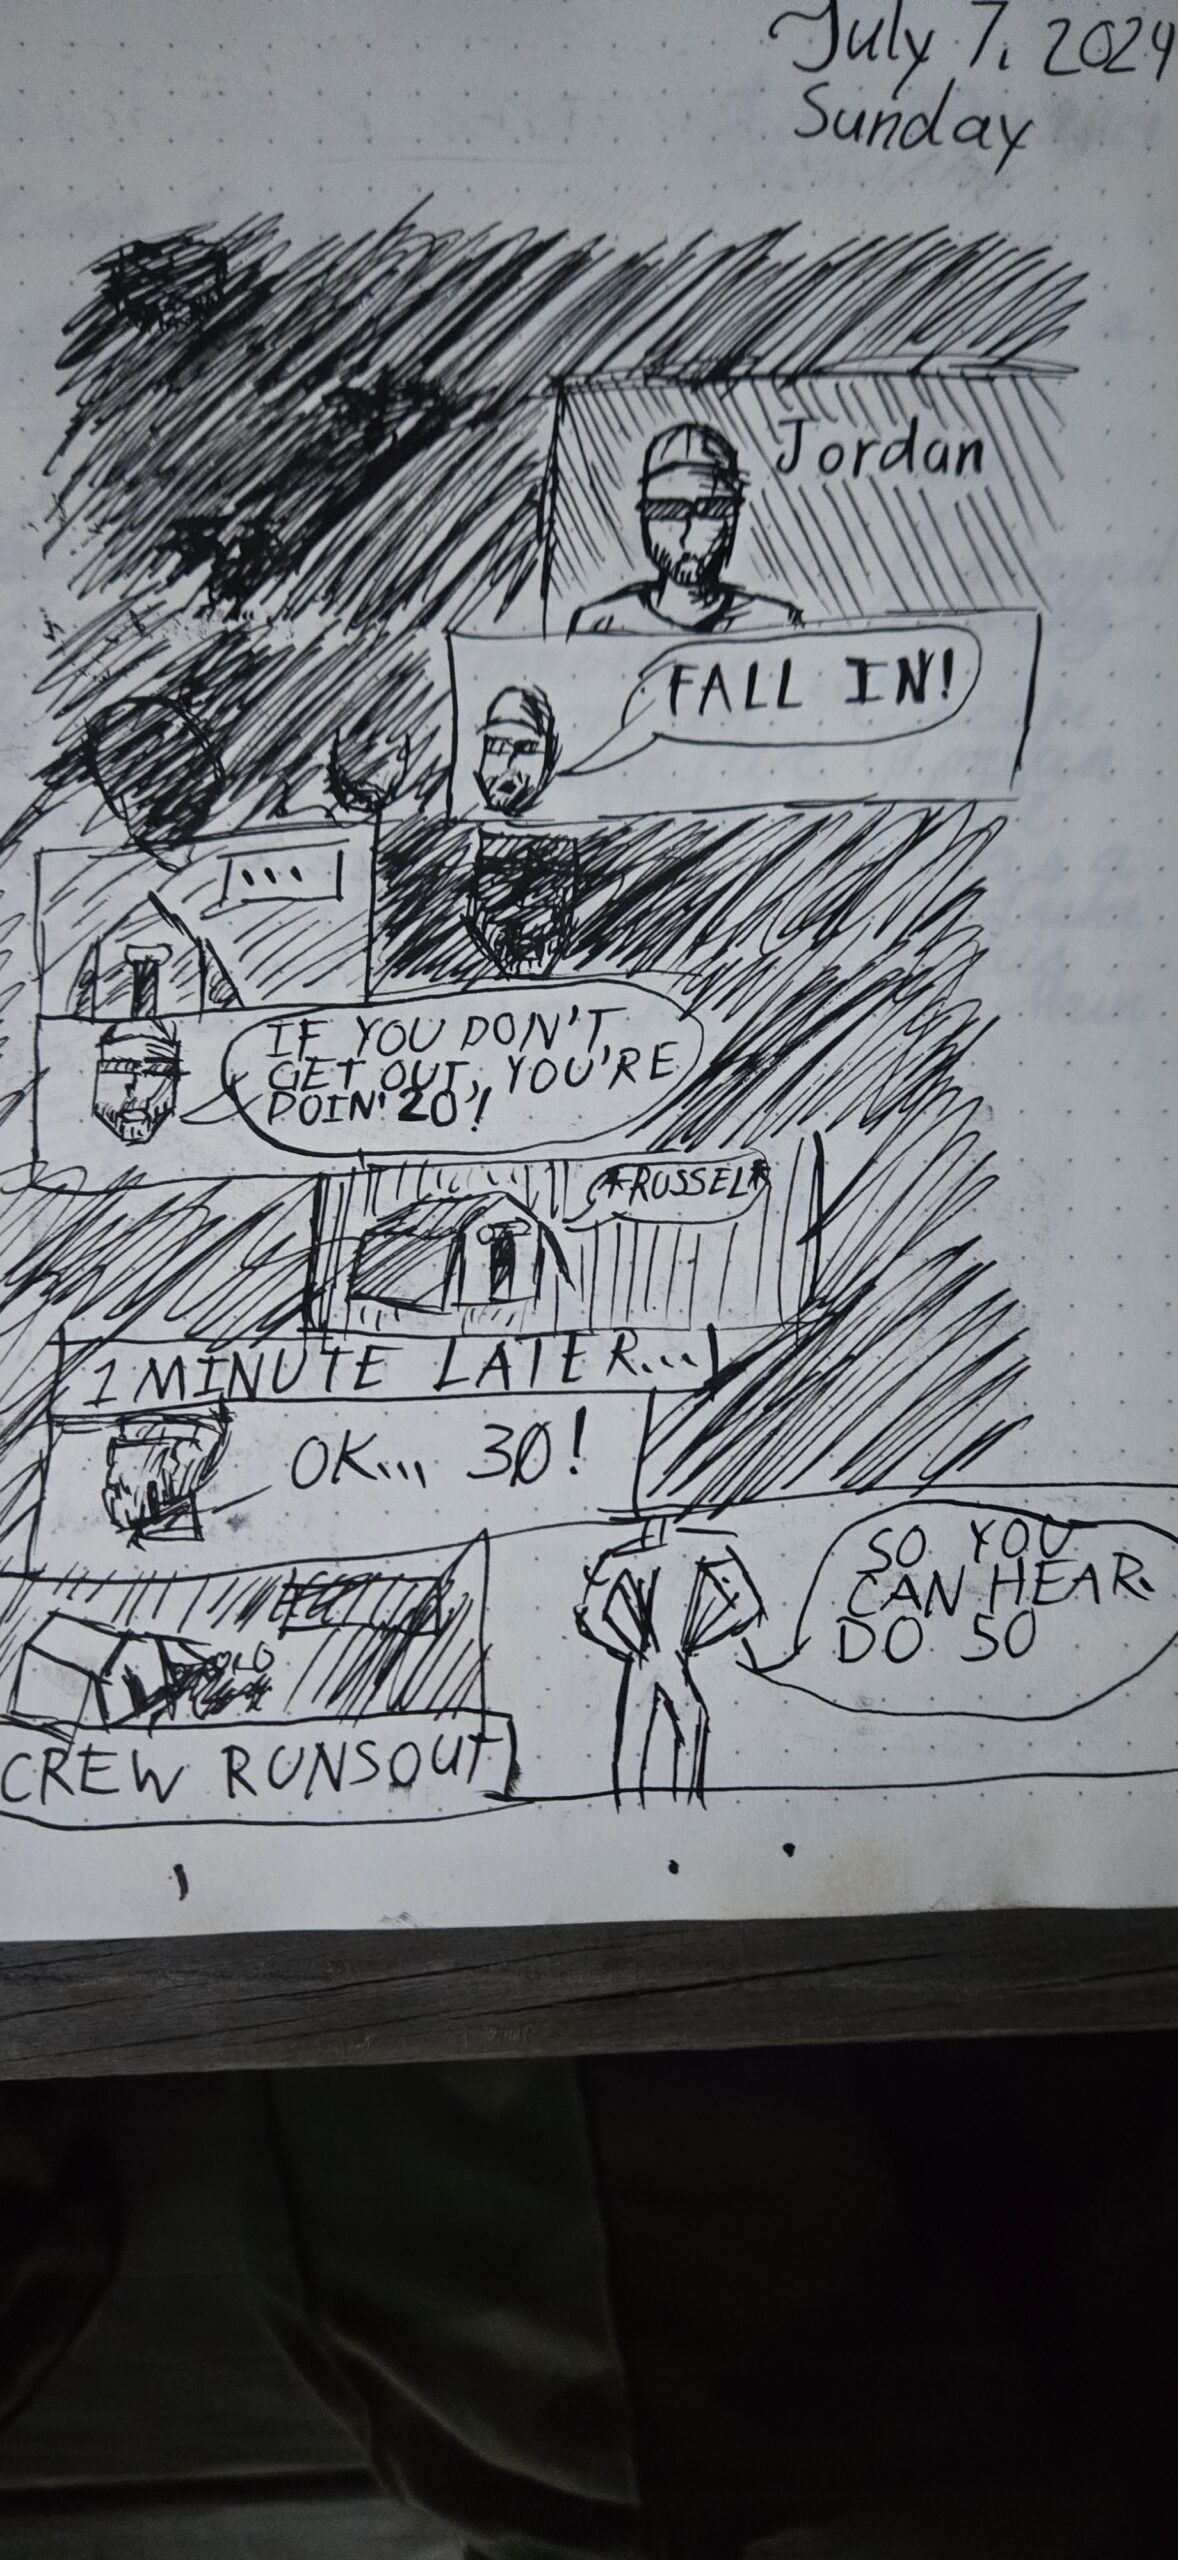 July 7, 2024
Sunday
Jordan
FALL IN!
...
IF YOU DON'T
GET OUT, YOU'RE
DOIN' 20!
*RUSSEL*
1 MINUTE LATER...
OK... 30!
SO YOU
CAN HEAR.
DO SO
CREW RUNS OUT